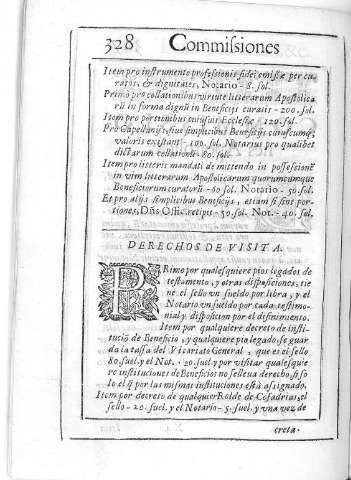 328 Commisiones
Item pro instrumento professionis fidei emissæ per cu-
ratos, & dignitates, Notario - 8. sol.
Primò pro collationibus virtute litterarum Apostolica-
rũ in forma dignũ in Beneficijs curatis - 200. sol.
Item pro portionibus cuiusuis Ecclesiæ - 120. sol.
Pro Capellanijs, siue simplicibus Beneficijs cuiuscumq;
valoris existant - 100. sol. Notarius pro qualibet
dictarum collationũ - 80. sol.
Item pro litteris mandati de mittendo in possessionẽ
in vim litterarum Apostolicarum quorumcumque
Beneficiorum curatorũ - 60. sol. Notario - 50. sol.
Et pro alijs simplicibus Beneficijs, etiam si sint por-
tiones, Dñs Offic. recipit - 50. sol. Not. - 40. sol.
DERECHOS DE VISITA.
PRimo por qualesquiere pios legados de
testamento, y otras disposiciones, tie-
ne el sello vn sueldo por libra, y el
Notario vn sueldo por cada testimo-
nial y disposicion por el definimiento.
Item por qualquiere decreto de insti-
tuciõ de Beneficio, y qualquiere pio legado, se guar-
da la tassa del Vicariato General, que es el sello
80. suel. y el Not. - 20. suel y por visitar qualesquie-
re instituciones de Beneficios no se lleua derecho, si so-
lo el q̃ por las mismas instituciones està assignado.
Item por decreto de qualquier Rolde de Cofadrias, el
sello - 20. suel. y el Notario - 5. suel. y vna vez de-
creta-